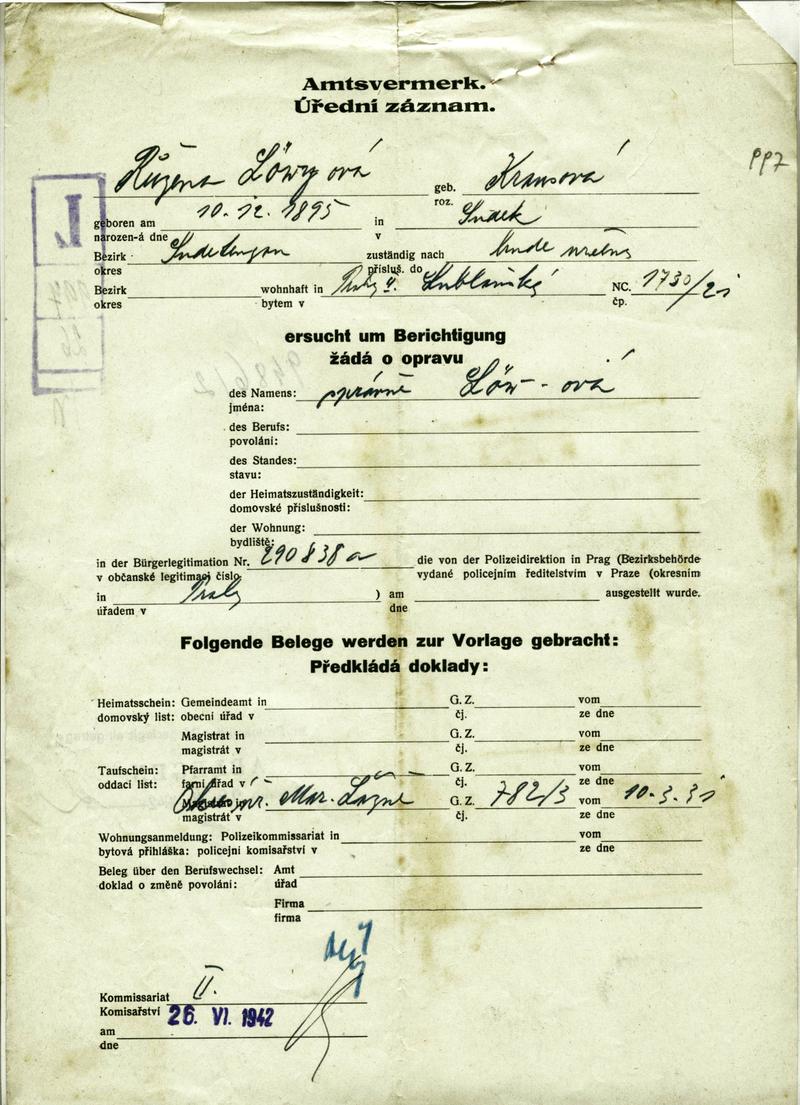 Amtsvermerk.
Úřední záznam.
997
Růžena Löwyová geb. Krausová
roz.
geboren am 10. 12. 1895 in
narozen-á dne v
Bezirk zuständig nach
okres přísluš. do
Bezirk wohnhaft in Lublaňská NC. 1730/21
okres bytem v čp.
ersucht um Berichtigung
žádá o opravu
des Namens: správně Löw-ová
jména:
des Berufs:
povolání:
des Standes:
stavu:
der Heimatszuständigkeit:
domovské příslušnosti:
der Wohnung:
bydliště:
in der Bürgerlegitimation Nr. 290838 a die von der Polizeidirektion in Prag (Bezirksbehörde
v občanské legitimaci číslo vydané policejním ředitelstvím v Praze (okresním
in ) am ausgestellt wurde.
úřadem v dne
Folgende Belege werden zur Vorlage gebracht:
Předkládá doklady:
Heimatsschein: Gemeindeamt in G. Z. vom
domovský list: obecní úřad v čj. ze dne
Magistrat in G. Z. vom
magistrát v čj. ze dne
Taufschein: Pfarramt in G. Z. vom
oddací list: farní úřad v čj. ze dne
Magistrat in Mar. Lázně G. Z. 782/3 vom 10. 3. 31
magistrát v čj. ze dne
Wohnungsanmeldung: Polizeikommissariat in vom
bytová přihláška: policejní komisařství v ze dne
Beleg über den Berufswechsel: Amt
doklad o změně povolání: úřad
Firma
firma
Kommissariat II.
Komisařství 26. VI. 1942
am
dne